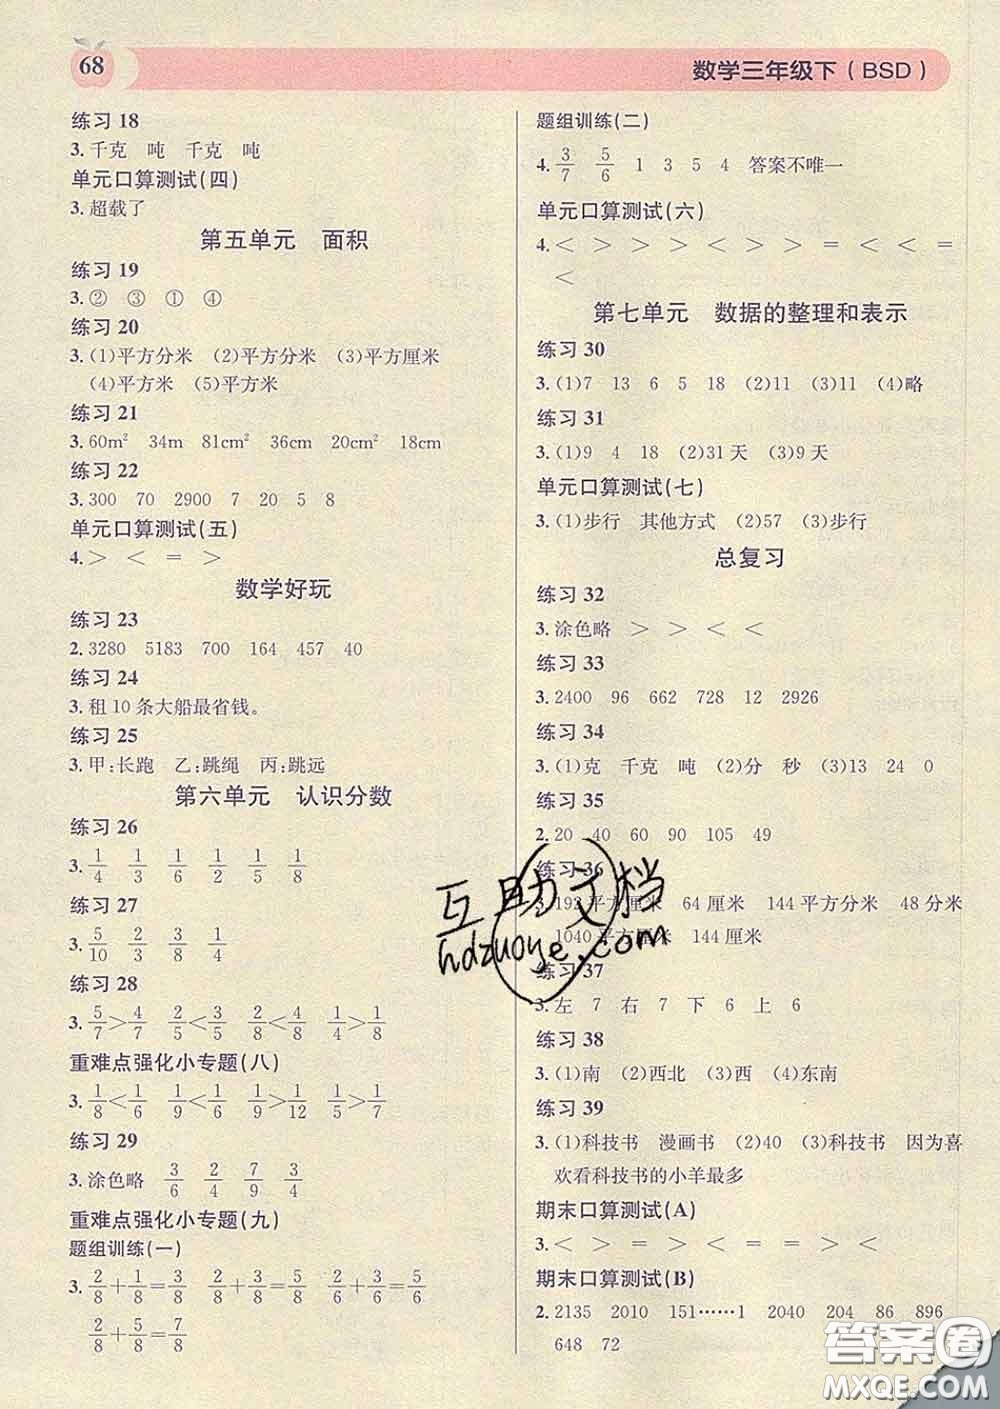 68
数学三年级下（BSD）
练习 18
3. 千克 吨 千克 吨
单元口算测试(四)
3. 超载了
第五单元 面积
练习 19
3. ② ③ ① ④
练习 20
3. (1)平方分米 (2)平方分米 (3)平方厘米
(4)平方米 (5)平方米
练习 21
3. 60m² 34m 81cm² 36cm 20cm² 18cm
练习 22
3. 300 70 2900 7 20 5 8
单元口算测试(五)
4. > < = >
数学好玩
练习 23
2. 3280 5183 700 164 457 40
练习 24
3. 租 10 条大船最省钱。
练习 25
3. 甲:长跑 乙:跳绳 丙:跳远
第六单元 认识分数
练习 26
3. 1/4 1/3 1/6 1/2 1/5 1/8
练习 27
3. 5/10 2/3 3/8 1/4
练习 28
3. 5/7>4/7 2/5<3/5 2/8<4/8 1/4>1/8
重难点强化小专题(八)
3. 1/8<1/6 1/9<1/6 1/9>1/12 1/5>1/7
练习 29
3. 涂色略 3/6 2/4 7/9 3/4
重难点强化小专题(九)
题组训练(一)
3. 2/8+1/8=3/8 2/8+3/8=5/8 2/6+3/6=5/6
2/8+5/8=7/8
题组训练(二)
4. 3/7 5/6 1 3 5 4 答案不唯一
单元口算测试(六)
4. < > > > < > > = < < =
<
第七单元 数据的整理和表示
练习 30
3. (1)7 13 6 5 18 (2)11 (3)11 (4)略
练习 31
3. (1)9 4 18 (2)31 天 (3)9 天
单元口算测试(七)
3. (1)步行 其他方式 (2)57 (3)步行
总复习
练习 32
3. 涂色略 > > < <
练习 33
3. 2400 96 662 728 12 2926
练习 34
3. (1)克 千克 吨 (2)分 秒 (3)13 24 0
练习 35
2. 20 40 60 90 105 49
练习 36
3. 192 平方厘米 64 厘米 144 平方厘米 48 分米
1040 平方厘米 144 厘米
练习 37
3. 左 7 右 7 下 6 上 6
练习 38
3. (1)南 (2)西北 (3)西 (4)东南
练习 39
3. (1)科技书 漫画书 (2)40 (3)科技书 因为喜
欢看科技书的小羊最多
期末口算测试(A)
3. < > = > < < = = > <
期末口算测试(B)
2. 2135 2010 151……1 2040 204 86 896
648 72
互助文档
hdzuoye.com
答案圈
MXQE.COM